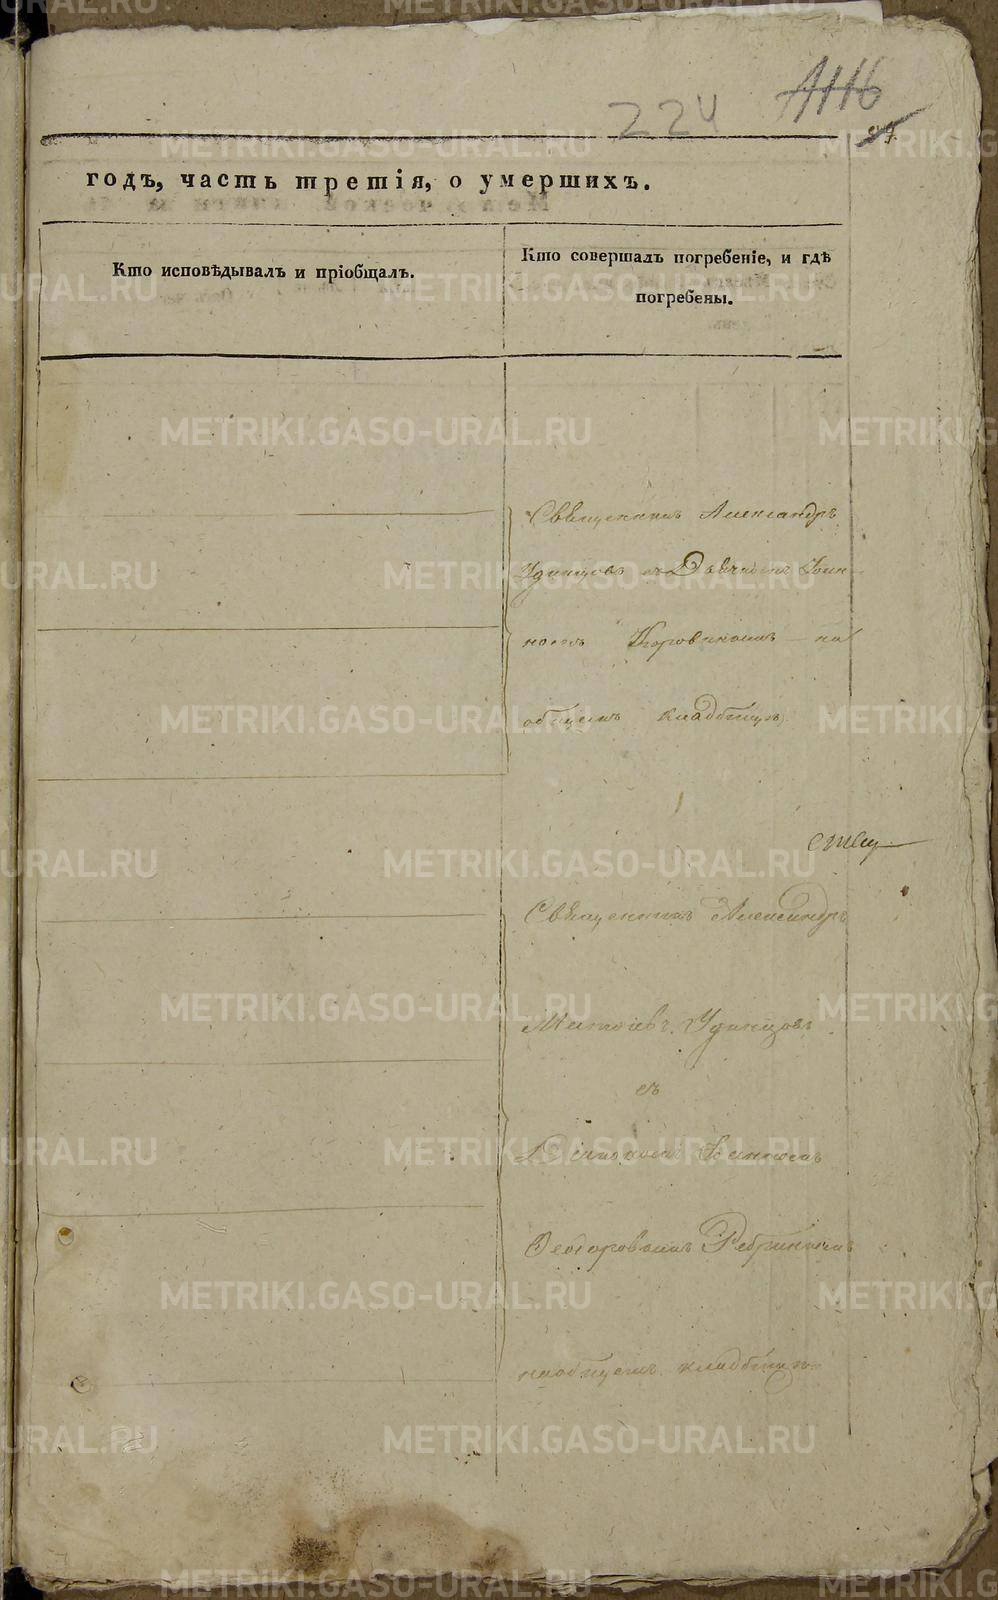 224
годъ, часть третія, о умершихъ.
Кто исповѣдывалъ и пріобщалъ.
Кто совершалъ погребеніе, и гдѣ
погребены.
Священникъ Александръ
Удинцовъ съ Дьячкомъ Іоан-
номъ на
общемъ кладбищѣ
Священникъ Александръ
Матѳіевъ Удинцовъ
съ
Ѳедоровымъ Ребринымъ
на общемъ кладбищѣ
METRIKI.GASO-URAL.RU